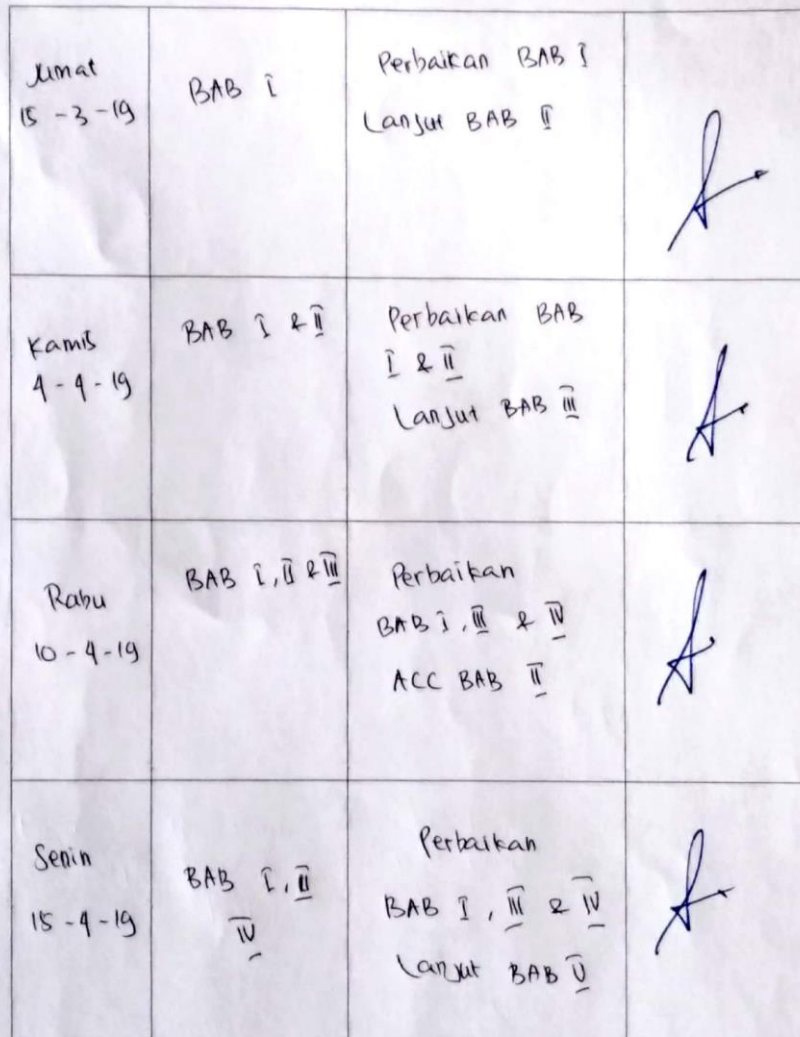 Jumat
15 - 3 - 19
BAB I
Perbaikan BAB I
Lanjut BAB II
Kamis
4 - 4 - 19
BAB I & II
Perbaikan BAB
I & II
Lanjut BAB III
Rabu
10 - 4 - 19
BAB I, II & III
Perbaikan
BAB I, III & IV
ACC BAB II
Senin
15 - 4 - 19
BAB I, II
IV
Perbaikan
BAB I, III & IV
Lanjut BAB V